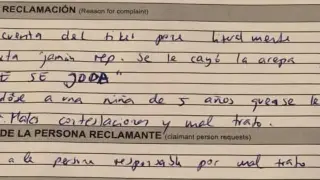 RECLAMACIÓN (Reason for complaint)
cuenta del tiket pone literalmente
jamón rep. Se le cayó la arepa
E SE JODA"
a una niña de 5 años que se le
Malas contestaciones y mal trato.
DE LA PERSONA RECLAMANTE (claimant person requests)
a la persona responsable por mal trato